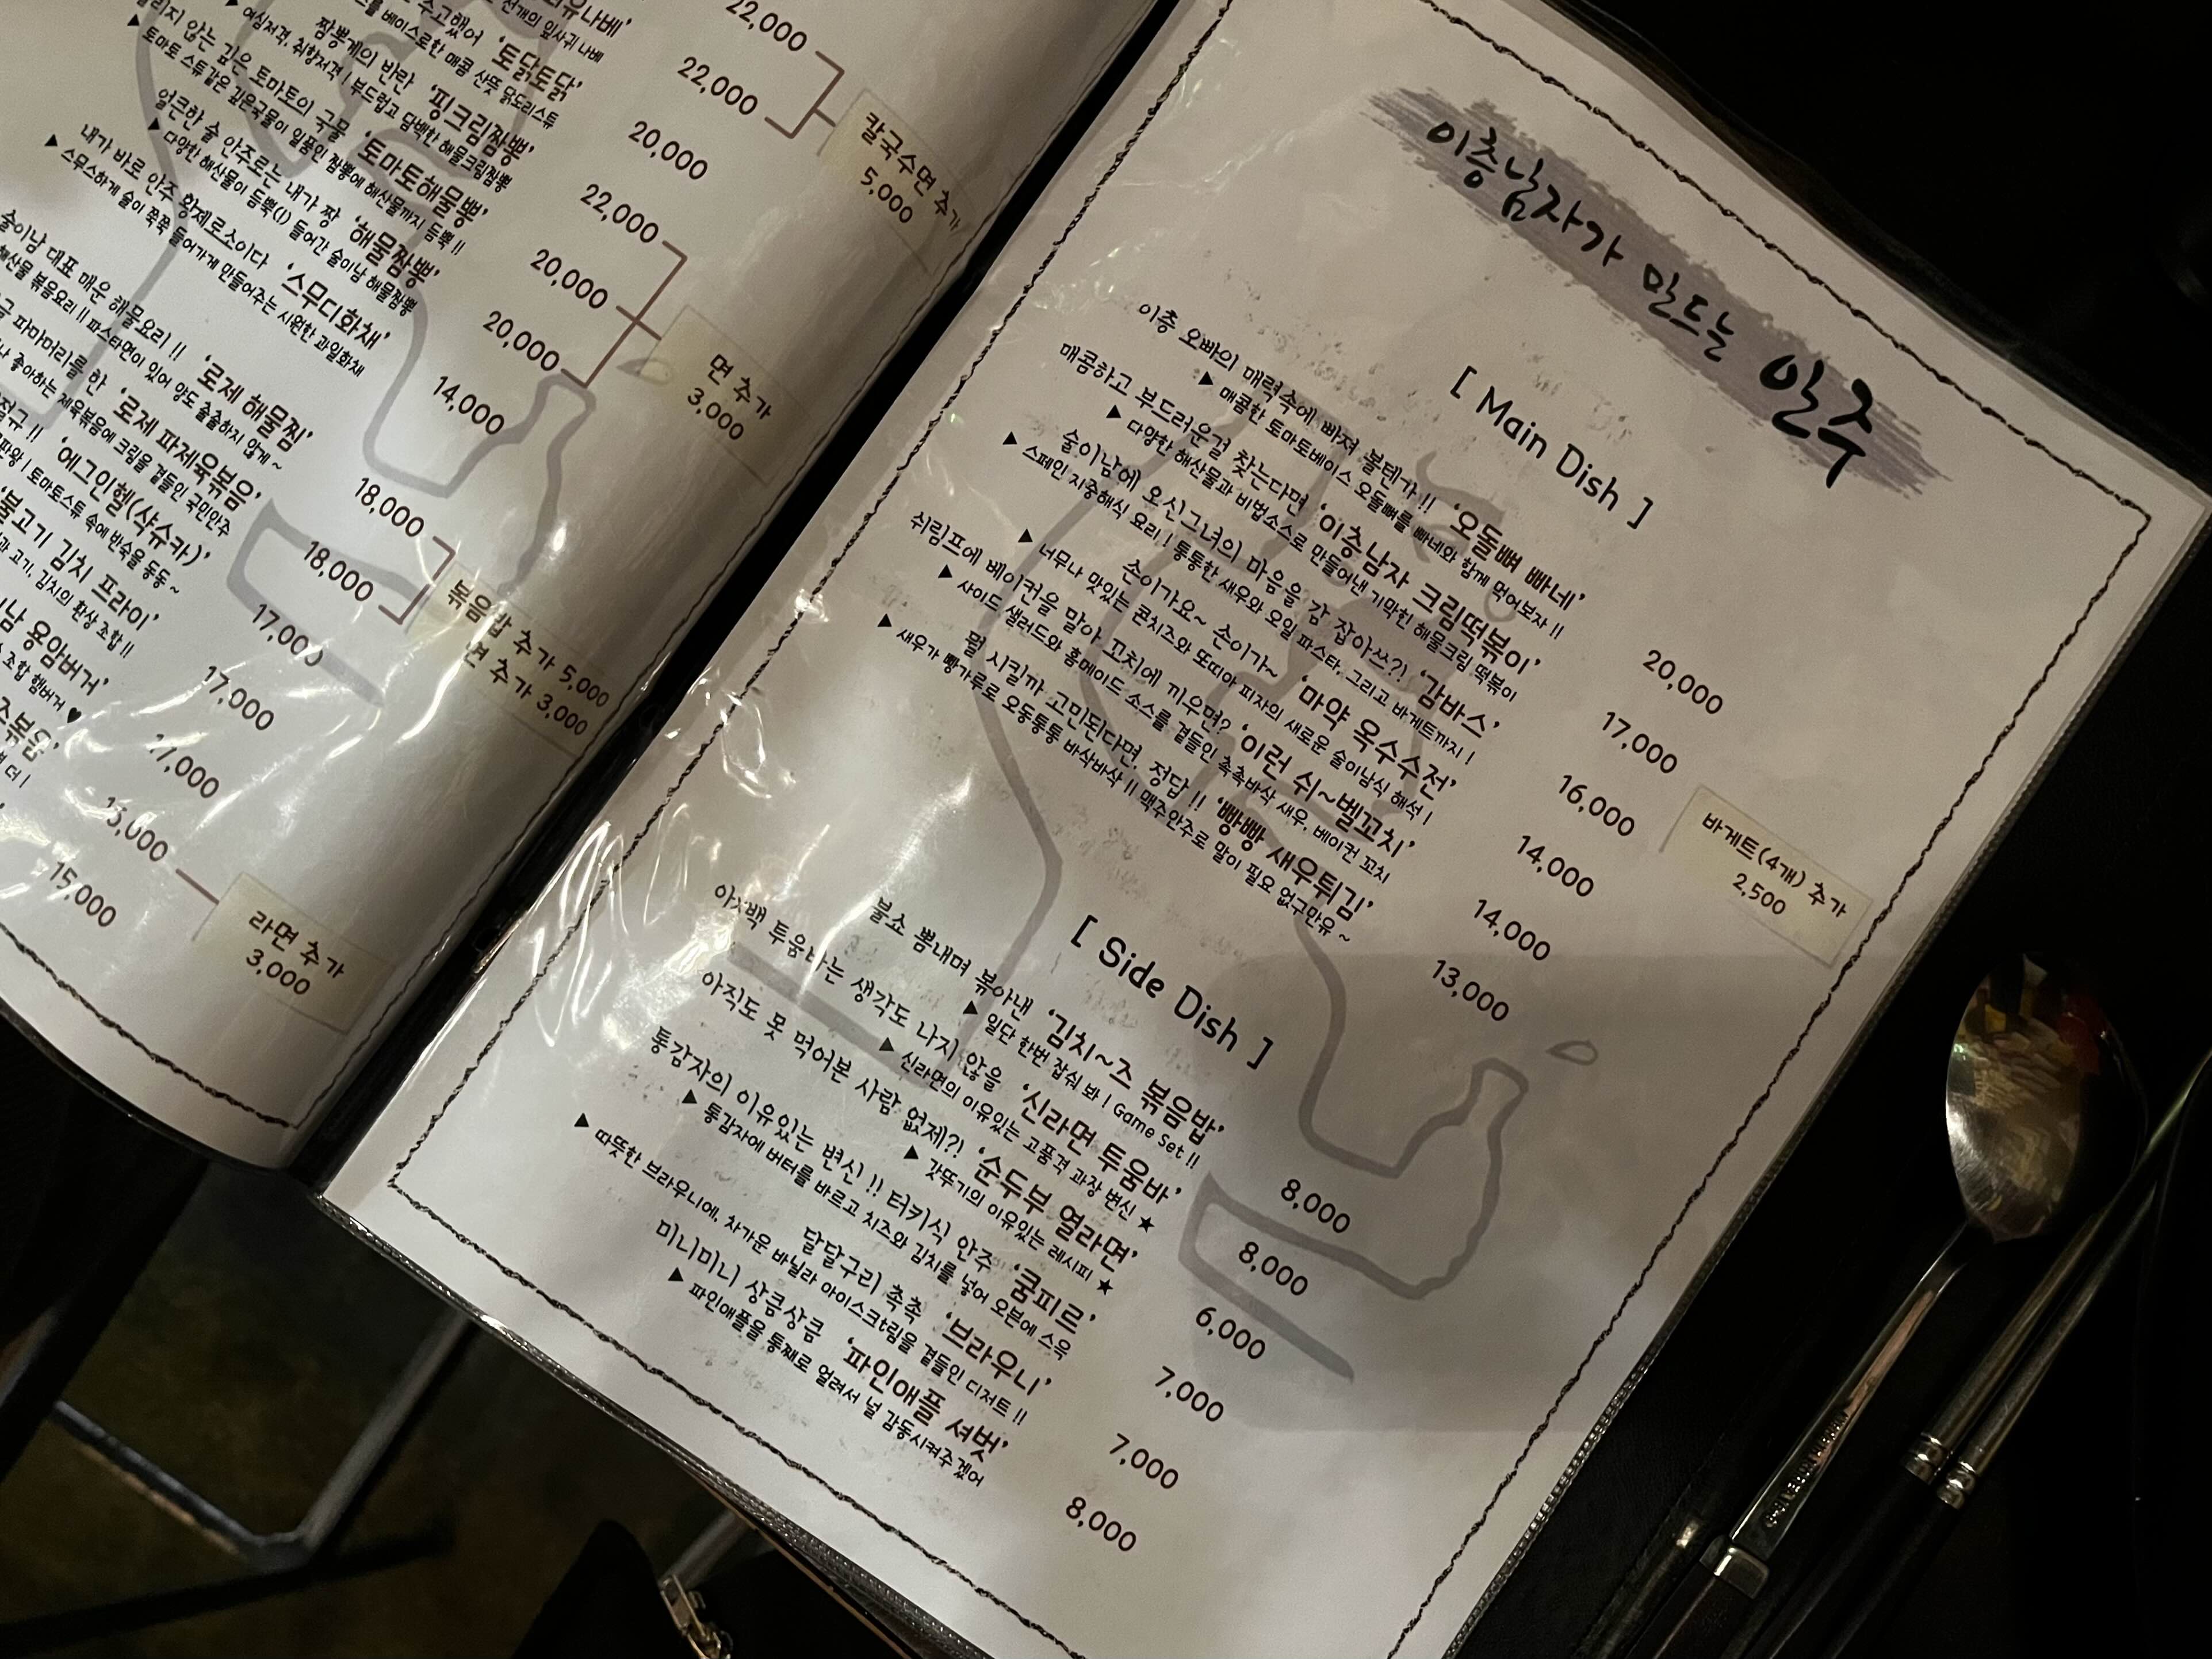 유나베' 22,000
전개의 잎사귀 나베
수고했어 '토닭토닭' 22,000
베이스로한 매콤 산뜻 닭도리스튜
칼국수면 추가
5,000
짬뽕계의 반란 '핑크림짬뽕' 20,000
▶ 여심저격, 취향저격 ! 부드럽고 담백한 해물크림짬뽕
않는 깊은 토마토의 국물 '토마토해물뽕' 22,000
▶ 토마토 스튜같은 깊은국물이 일품인 짬뽕에 해산물까지 듬뿍 !!
얼큰한 술 안주로는 내가 짱 '해물짬뽕' 20,000
▶ 다양한 해산물이 듬뿍(!) 들어간 술이남 해물짬뽕
내가 바로 안주 황제로소이다 '스무디화채' 20,000
▶ 스무스하게 술이 쭉쭉 들어가게 만들어주는 시원한 과일화채
14,000
면 추가
3,000
술이남 대표 매운 해물요리 !! '로제 해물찜' 18,000
해산물 볶음요리 !! 파스타면이 있어 양도 출출하지 않게 ~
파마머리를 한 '로제 파제육볶음' 18,000
좋아하는 제육볶음에 크림을 곁들인 국민안주
볶음밥 추가 5,000
면 추가 3,000
'에그인헬(샥슈카)' 17,000
토마토스튜 속에 반숙을 동동 ~
불고기 김치 프라이' 17,000
고기, 김치의 환상 조합 !!
용암버거' 17,000
조합 햄버거 ♥
15,000
15,000
라면 추가
3,000
이층남자가 만드는 안주
[ Main Dish ]
이층 오빠의 매력속에 빠져 볼텐가 !! '오돌뼈 빠네' 20,000
▶ 매콤한 토마토베이스 오돌뼈를 빠네와 함께 먹어보자 !!
매콤하고 부드러운걸 찾는다면 '이층남자 크림떡볶이' 17,000
▶ 다양한 해산물과 비법소스로 만들어낸 기막힌 해물크림 떡볶이
술이남에 오신그녀의 마음을 감 잡아쓰?! '감바스' 16,000
▶ 스페인 지중해식 요리 ! 통통한 새우와 오일 파스타, 그리고 바게트까지 !
바게트(4개) 추가
2,500
손이가요~ 손이가~ '마약 옥수수전' 14,000
▶ 너무나 맛있는 콘치즈와 또띠아 피자의 새로운 술이남식 해석 !
쉬림프에 베이컨을 말아 꼬치에 끼우면? '이런 쉬~벨꼬치' 14,000
▶ 사이드 샐러드와 홈메이드 소스를 곁들인 촉촉바삭 새우, 베이컨 꼬치
뭘 시킬까 고민된다면, 정답 !! '빵빵 새우튀김' 13,000
▶ 새우가 빵가루로 오동통통 바삭바삭 !! 맥주안주로 말이 필요 없구만유 ~
[ Side Dish ]
불쇼 뽐내며 볶아낸 '김치~즈 볶음밥' 8,000
▶ 일단 한번 잡숴 봐 ! Game Set !!
아X백 투움바는 생각도 나지 않을 '신라면 투움바' 8,000
▶ 신라면의 이유있는 고품격 과장 변신 ★
아직도 못 먹어본 사람 없제?! '순두부 열라면' 6,000
▶ 갓뚜기의 이유있는 레시피 ★
통감자의 이유있는 변신 !! 터키식 안주 '쿰피르' 7,000
▶ 통감자에 버터를 바르고 치즈와 김치를 넣어 오븐에 스윽
달달구리 촉촉 '브라우니' 7,000
▶ 따뜻한 브라우니에, 차가운 바닐라 아이스크t림을 곁들인 디저트 !!
미니미니 상큼상큼 '파인애플 셔벗' 8,000
▶ 파인애플을 통째로 얼려서 널 감동시켜주겠어